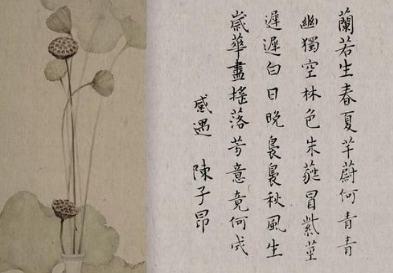 蘭若生春夏芊蔚何青青
幽獨空林色朱蕤冒紫莖
遲遲白日晚裊裊秋風生
嵗華盡搖落芳意竟何成
感遇 陳子昂